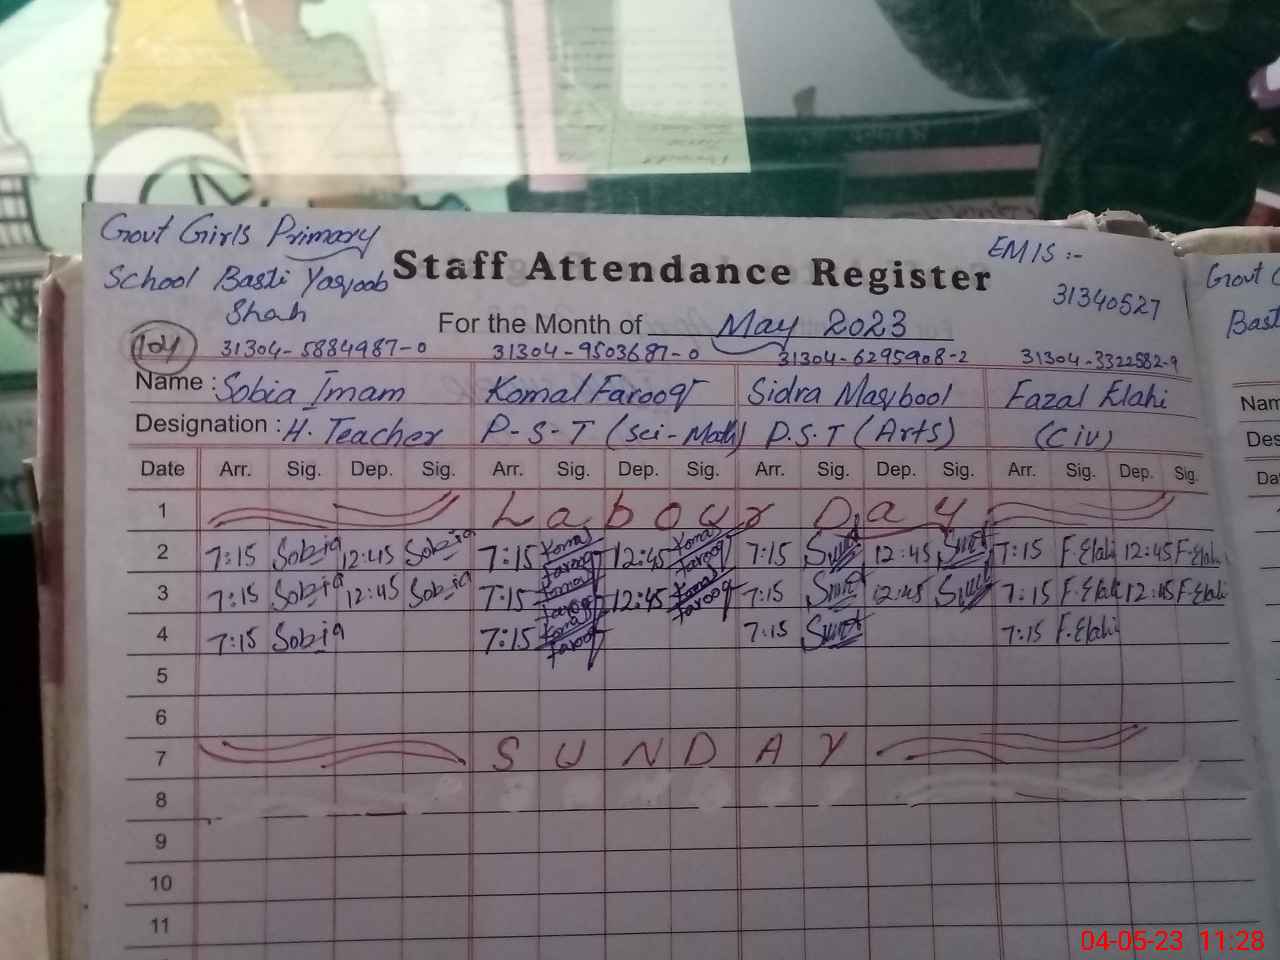 Govt Girls Primary
School Basti Yaqoob
Shah
Staff Attendance Register
EMIS :-
31340527
For the Month of May 2023
104
31304-5884987-0 31304-9503687-0 31304-6295908-2 31304-3322582-9
Name : Sobia Imam Komal Farooq Sidra Maqbool Fazal Elahi
Designation : H. Teacher P-S-T (Sci-Math) P.S.T (Arts) (Civ)
Date Arr. Sig. Dep. Sig. Arr. Sig. Dep. Sig. Arr. Sig. Dep. Sig. Arr. Sig. Dep. Sig.
1 Labour Day
2 7:15 Sobia 12:45 Sobia 7:15 Komal Farooq 12:45 Komal Farooq 7:15 12:45 7:15 F.Elahi 12:45 F.Elahi
3 7:15 Sobia 12:45 Sobia 7:15 Komal Farooq 12:45 Komal Farooq 7:15 12:45 7:15 F.Elahi 12:45 F.Elahi
4 7:15 Sobia 7:15 Komal Farooq 7:15 7:15 F.Elahi
5
6
7 SUNDAY
8
9
10
11
Govt
Bast
Nam
Des
Da
04-05-23 11:28